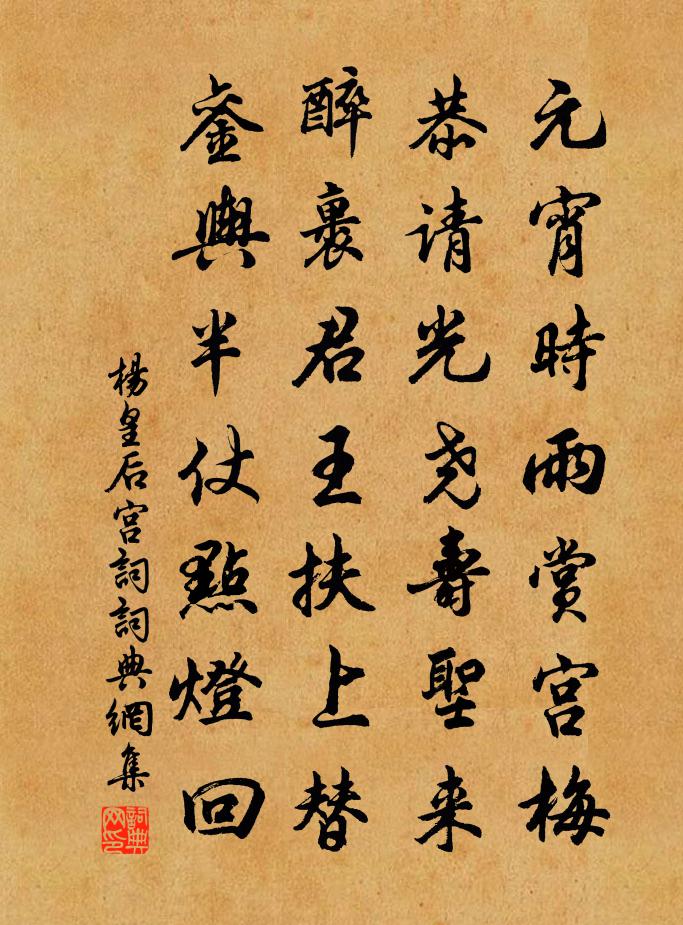 元宵時雨賞宮梅
恭请光尧壽聖来
醉裏君王扶上替
銮輿半仗點燈回
楊皇后宮詞詞典網集
詞典网印